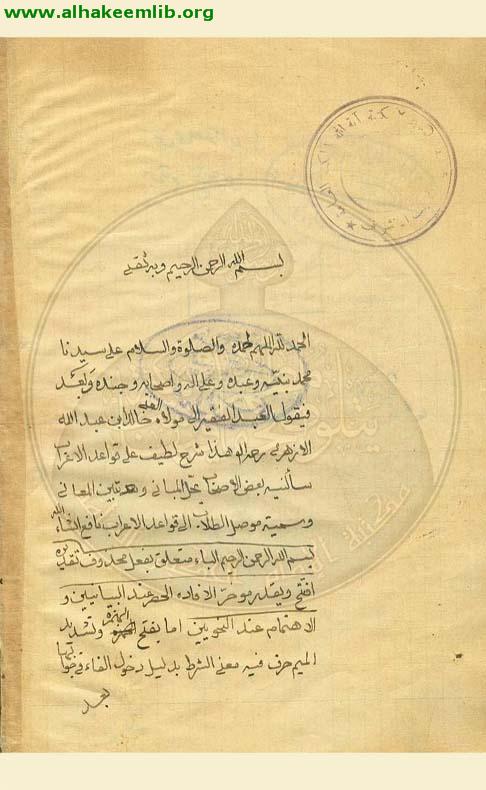 www.alhakeemlib.org
بسم الله الرحمن الرحيم وبه ثقتي
الحمد لله الملهم لحمده والصلوة والسلام على سيدنا
محمد نبيه وعبده وعلى اله واصحابه وجنده وبعد
فيقول العبد الفقير الى مولاه الغني خالد ابن عبد الله
الازهري هذا شرح لطيف على قواعد الاعراب
سألنيه بعض الاصحاب يحل المباني ويبين المعاني
وسميته موصل الطلاب الى قواعد الاعراب نافع انشاء الله
بسم الله الرحمن الرحيم الباء متعلق بفعل محذوف تقديره
افتتح ويقدر مؤخرا لافادة الحصر عند البيانيين و
الاهتمام عند النحويين اما بفتح الهمزة وتشديد
الميم حرف فيه معنى الشرط بدليل دخول الفاء في جوابها
بعد